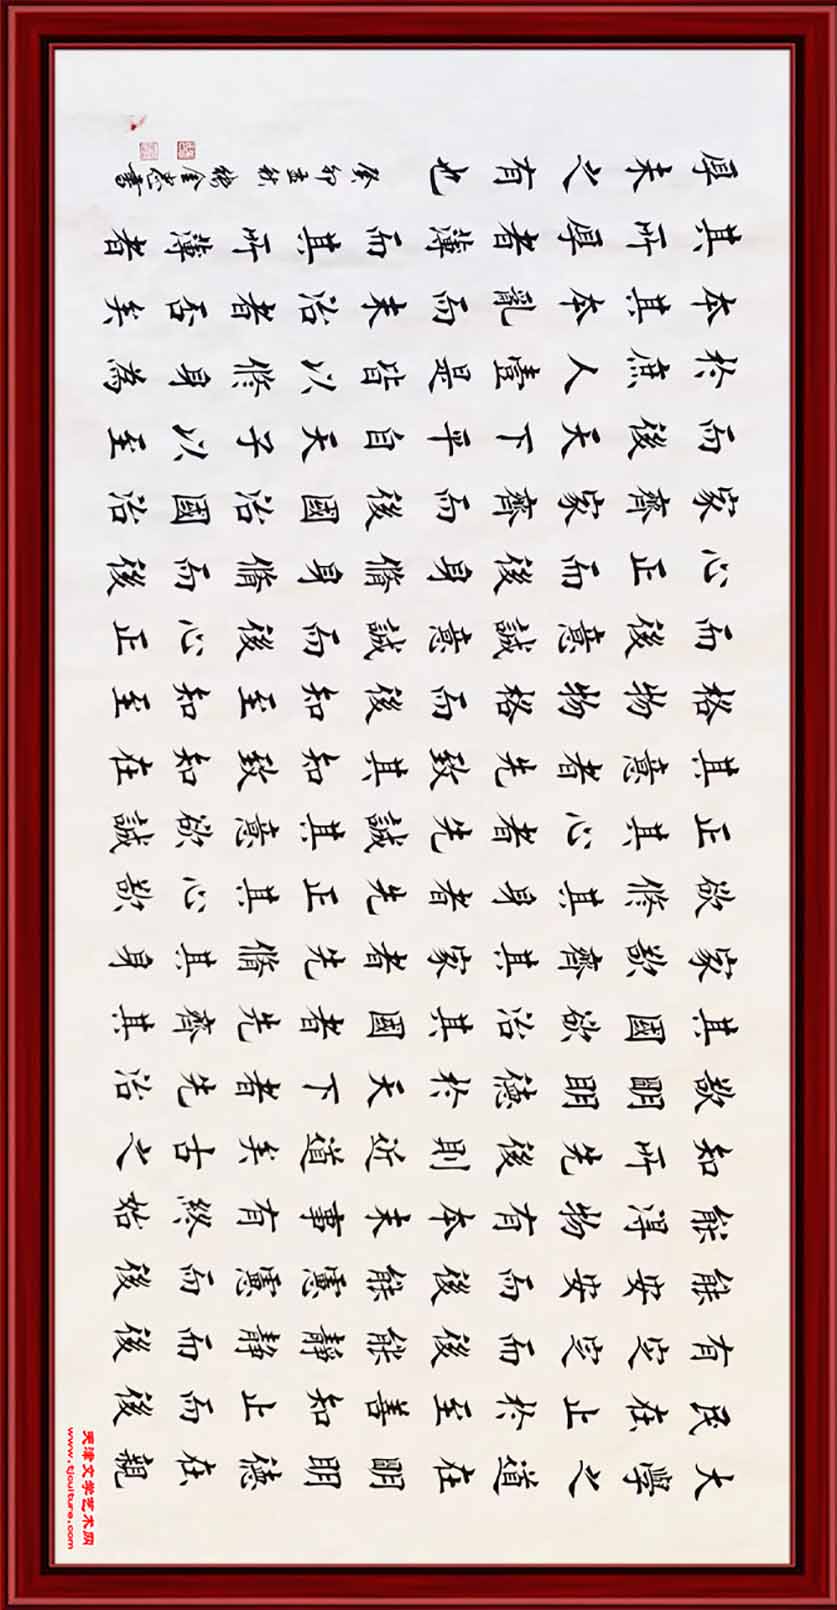 大學之道在明明德在親
民在止於至善知止而後
有定定而後能靜靜而後
能安安而後能慮慮而後
能得物有本末事有終始
知所先後則近道矣古之
欲明明德於天下者先治
其國欲治其國者先齊其
家欲齊其家者先脩其身
欲修其身者先正其心欲
正其心者先誠其意欲誠
其意者先致其知致知在
格物物格而後知至知至
而後意誠意誠而後心正
心正而後身脩身脩而後
家齊家齊而後國治國治
而後天下平自天子以至
於庶人壹是皆以修身為
本其本亂而末治者否矣
其所厚者薄而其所薄者
厚未之有也 癸卯孟秋 金 書
天津文学艺术网
www.tjculture.com